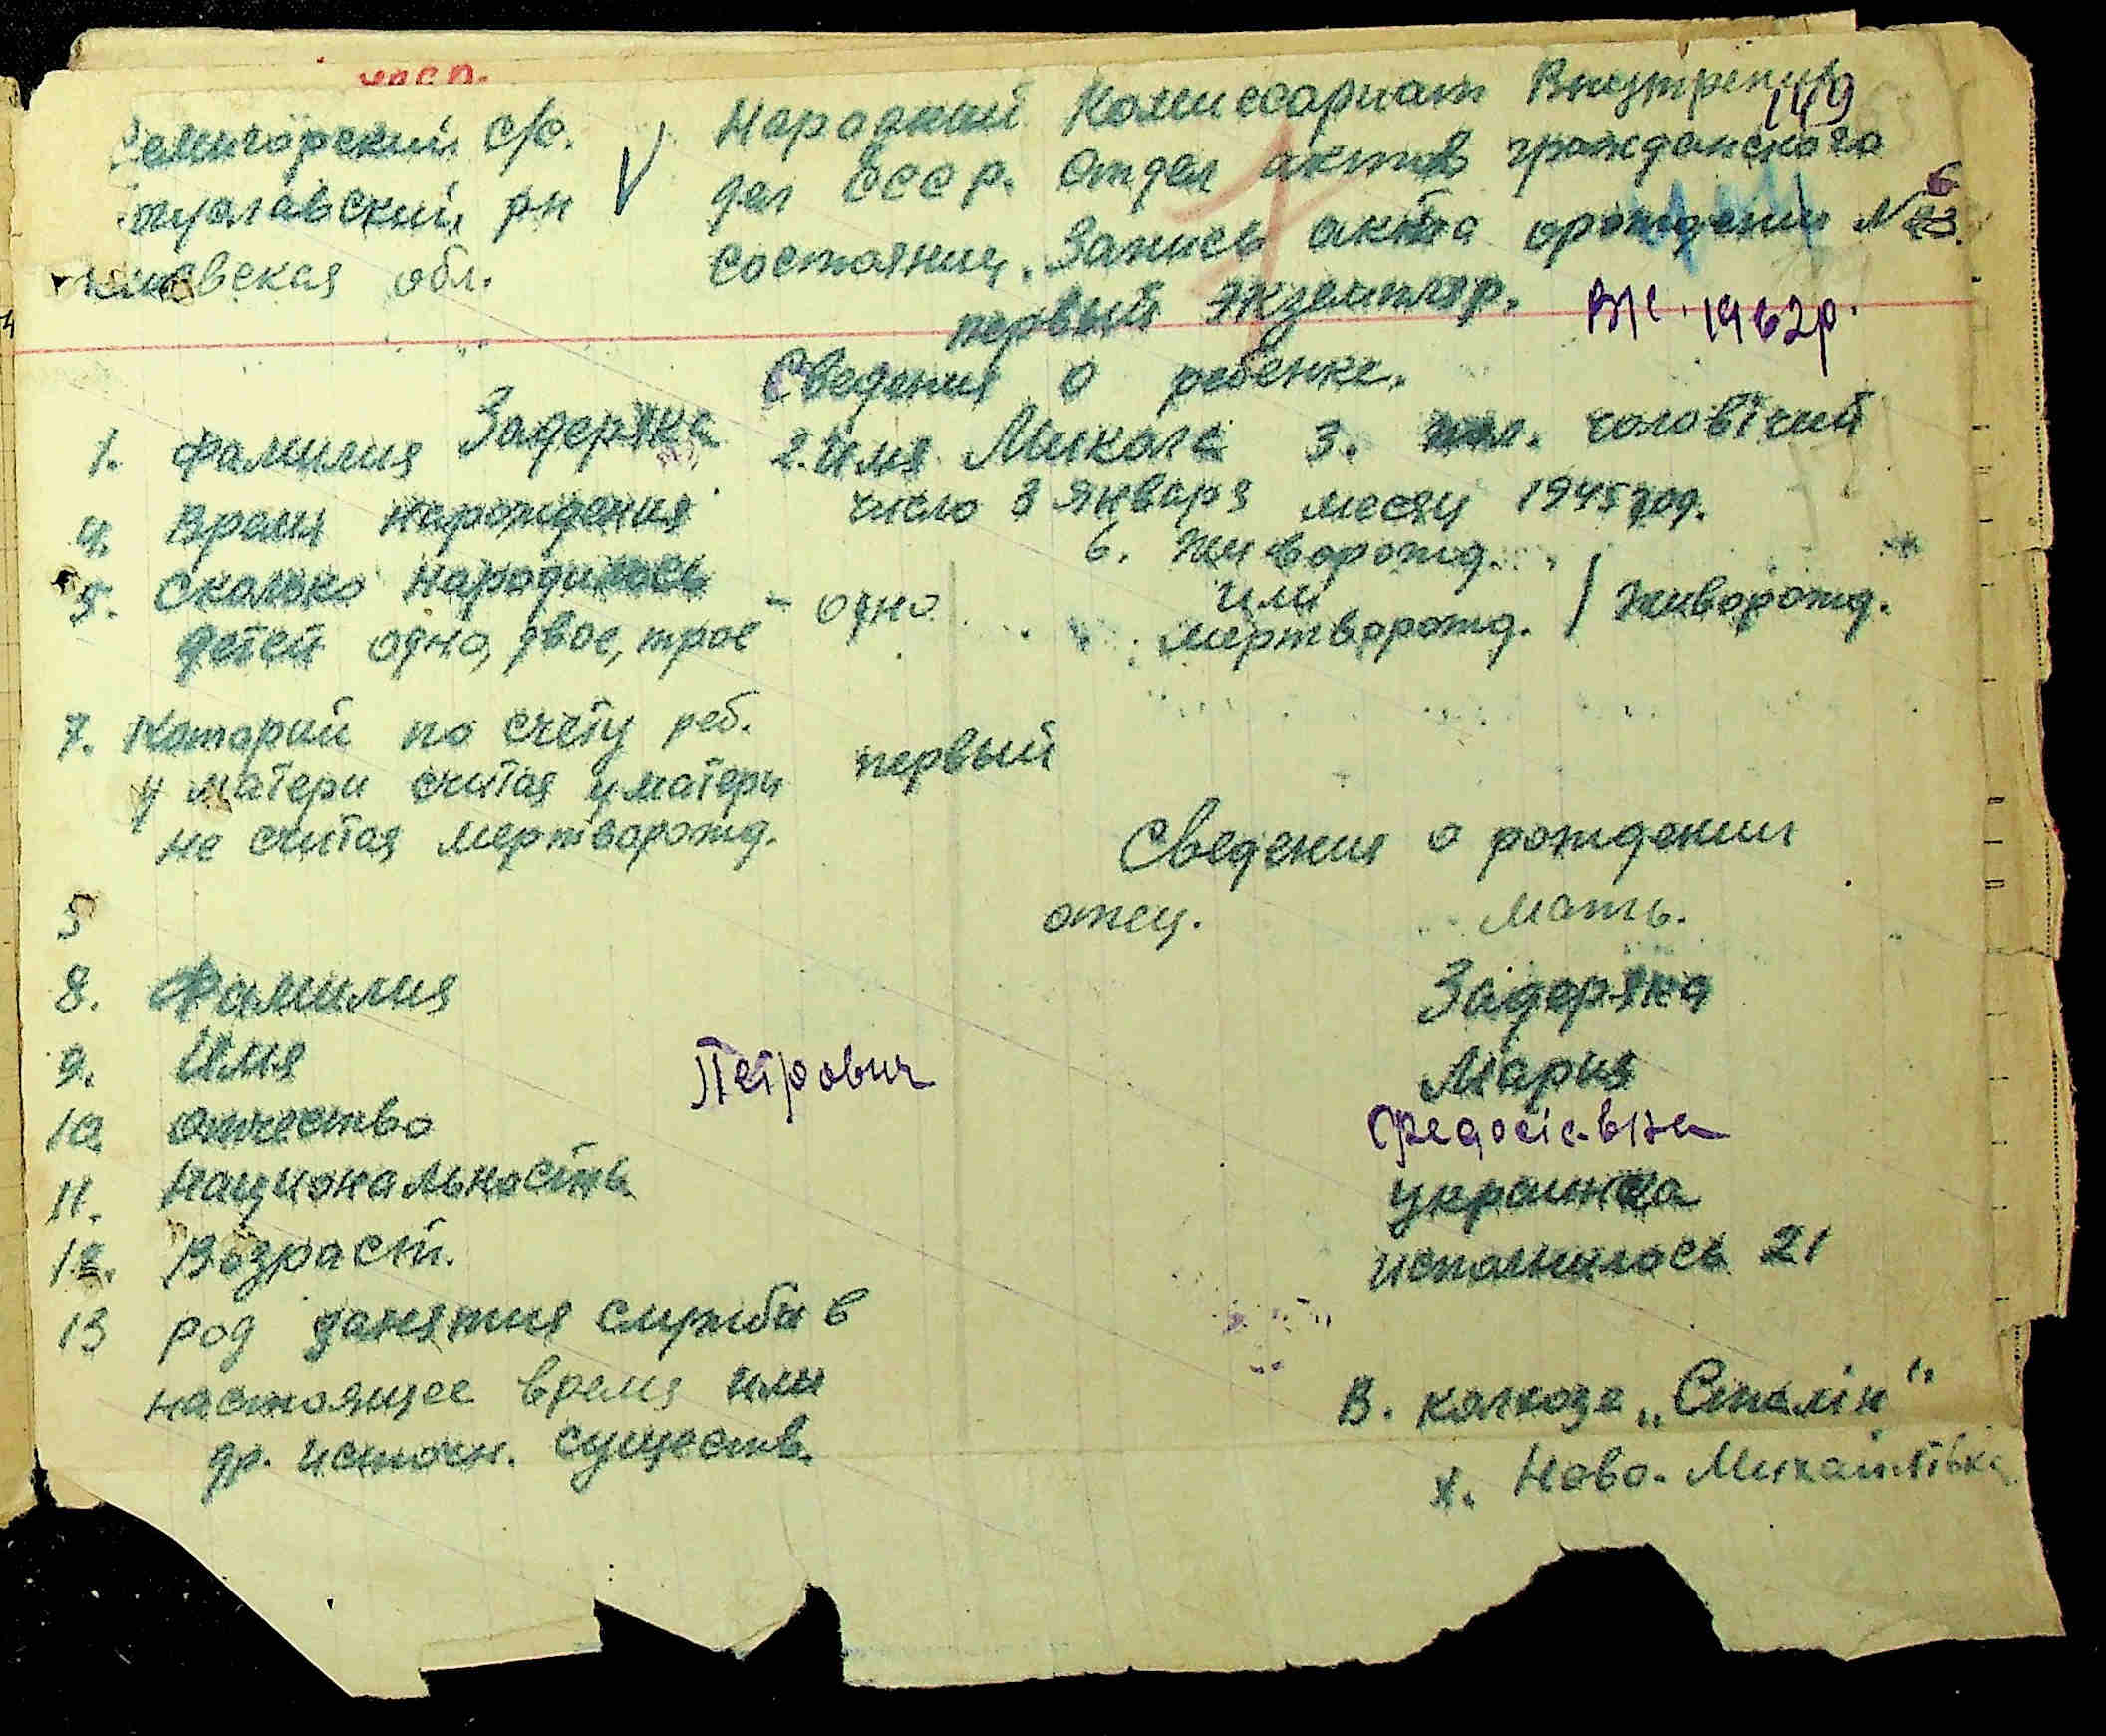 Семигорский с/с.
Богуславский рн
Киевская обл.
Народный Комиссариат Внутрених
149
дел СССР. Отдел актов гражданского
состояния. Запись акта о рождении №
6
первый экземпляр.
В/с. 1962р.
Сведения о ребенке.
1. Фамилия Задеряка 2. Имя Микола 3. пол. чоловічий
4. Время нарождения число 3 января месяц 1945 год.
5. Сколько народилось
детей одно, двое, трое - одно
6. Живорожд.
или
мертворожд. / Живорожд.
7. Который по счету реб.
у матери считая у матери первый
не считая мертворожд.
Сведения о рождении
5
отец. мать.
8. Фамилия Задеряка
9. Имя Мария
Петрович
10. Отчество Федосіївна
11. Национальность украинка
12. Возраст. исполнилось 21
13 род занятия службы в
настоящее время или В. колхозе „Сталін"
др. источн. существ. х. Ново-Михайлівка